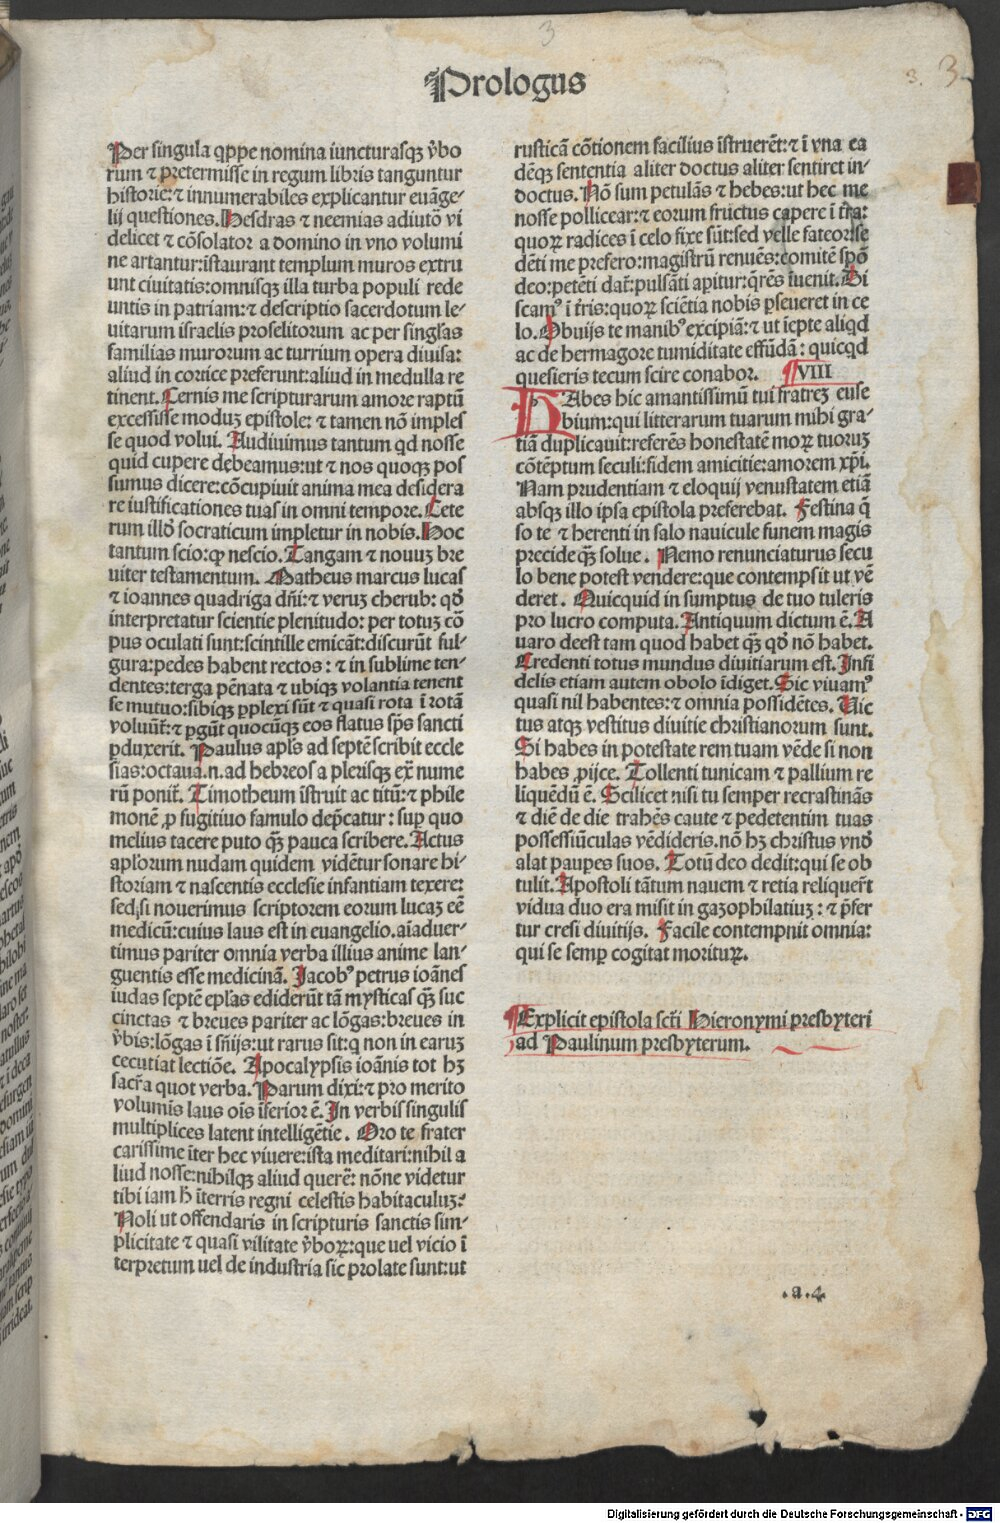 3
3. 3
Prologus
Per singula qꝓpe nomina iuncturasqꝫ v̓bo
rum ⁊ pretermisse in regum libris tanguntur
historie:⁊ innumerabiles explicantur euāge-
lij questiones. Hesdras ⁊ neemias adiutō vi
delicet ⁊ cōsolator a domino in vno volumi
ne artantur:īstaurant templum muros extru
unt ciuitatis:omnisqꝫ illa turba populi rede
untis in patriam:⁊ descriptio sacerdotum le-
uitarum israelis proselitorum ac per singĺas
familias murorum ac turrium opera diuisa:
aliud in cortice preferunt:aliud in medulla re
tinent. Cernis me scripturarum amore raptū
excessisse moduꝫ epistole: ⁊ tamen nō imples
se quod volui. Audiuimus tantum qd nosse
quid cupere debeamus:ut ⁊ nos quoqꝫ pos
sumus dicere:cōcupiuit anima mea desidera
re iustificationes tuas in omni tempore. Cete
rum illđ socraticum impletur in nobis. Hoc
tantum scio:ꝙ nescio. Tangam ⁊ nouuꝫ bre
uiter testamentum. Matheus marcus lucas
⁊ ioannes quadriga dñi:⁊ veruꝫ cherub: qđ
interpretatur scientie plenitudo: per totuꝫ cō
pus oculati sunt:scintille emicāt:discurūt ful-
gura:pedes habent rectos: ⁊ in sublime ten-
dentes:terga pēnata ⁊ ubiqꝫ volantia tenent
se mutuo:sibiqꝫ ꝑplexi sūt ⁊ quasi rota ī rotā
voluūt̄: ⁊ ꝑgūt quocūqꝫ eos flatus sp̄s sancti
ꝑduxerit. Paulus apl̄s ad septē scribit eccle
sias:octaua.n.ad hebreos a plerisqꝫ ex̄ nume
rū ponit̄. Timotheum īstruit ac titū:⁊ phile
monē ꝓ fugitiuo famulo dep̄catur: suꝑ quo
melius tacere puto qꝫ̄ pauca scribere. Actus
apl̄orum nudam quidem vidētur sonare hi-
storiam ⁊ nascentis ecclesie infantiam texere:
sed:si nouerimus scriptorem eorum lucaꝫ eē
medicū:cuius laus est in euangelio.aīaduer-
timus pariter omnia verba illius anime lan-
guentis esse medicinā. Jacobꝰ petrus ioānes
iudas septē epl̄as ediderūt tā mysticas qꝫ̄ suc
cinctas ⁊ breues pariter ac lōgas:breues in
v̓bis:lōgas ī sn̄ijs:ut rarus sit:q non in earuꝫ
cecutiat lectiōe. Apocalypsis ioānis tot hꝫ
sacr̄a quot verba. Parum dixi:⁊ pro merito
voluminis laus oīs īferior ē. In verbis singulis
multiplices latent intelligētie. Oro te frater
carissime īter hec viuere:ista meditari:nihil a
liud nosse:nihilqꝫ aliud querē: nōne videtur
tibi iam h̄ īterris regni celestis habitaculuꝫ:
Noli ut offendaris in scripturis sanctis sim-
plicitate ⁊ quasi vilitate v̓boꝝ:que uel vicio ī
terpretum uel de industria sic prolate sunt:ut
rusticā cōtionem facilius īstruerēt:⁊ ī vna ea
dēqꝫ sententia aliter doctus aliter sentiret in-
doctus. Nō sum petulās ⁊ hebes:ut hec me
nosse pollicear:⁊ eorum fructus capere ī tr̄a:
quoꝝ radices ī celo fixe sūt:sed velle fateor:se
dēti me prefero:magistrū renuēs:comitē spō
deo:petēti dat̄:pulsāti aꝑitur:q̄rēs īuenit. Di
scamꝰ ī tr̄is:quoꝝ sciētia nobis ꝑseueret in ce
lo. Obuijs te manibꝰ excipiā:⁊ ut īepte aliqd
ac de hermagore tumiditate effūdā: quicqd
quesieris tecum scire conabor. VIII
HAbes hic amantissimū tui fratreꝫ euse
bium:qui litterarum tuarum mihi gra-
tiā duplicauit:referēs honestatē moꝝ tuoruꝫ
cōtēptum seculi:fidem amicitie:amorem xp̄i.
Nam prudentiam ⁊ eloquij venustatem etiā
absqꝫ illo ipsa epistola preferebat. Festina q̄
so te ⁊ herenti in salo nauicule funem magis
precide qꝫ̄ solue. Nemo renunciaturus secu
lo bene potest vendere:que contempsit ut vē
deret. Quicquid in sumptus de tuo tuleris
pro lucro computa. Antiquum dictum ē. A
uaro deest tam quod habet qꝫ̄ qđ nō habet.
Credenti totus mundus diuitiarum est. Infi
delis etiam autem obolo īdiget. Sic viuamꝰ
quasi nil habentes:⁊ omnia possidētes. Uic
tus atqꝫ vestitus diuitie christianorum sunt.
Si habes in potestate rem tuam vēde si non
habes ꝓijce. Tollenti tunicam ⁊ pallium re
liquēdū ē. Scilicet nisi tu semper recrastinās
⁊ diē de die trahēs caute ⁊ pedetentim tuas
possessiūculas vēdideris.nō hꝫ christus vnđ
alat pauꝑes suos. Totū deo dedit:qui se ob
tulit. Apostoli tātum nauem ⁊ retia reliquer̄t
vidua duo era misit in gazophilatiuꝫ: ⁊ p̄fer
tur cresi diuitijs. Facile contempnit omnia:
qui se semꝑ cogitat morituꝝ.
Explicit epistola scti̅ Hieronymi presbyteri
ad Paulinum presbyterum.
.a.4.
Digitalisierung gefördert durch die Deutsche Forschungsgemeinschaft - DFG